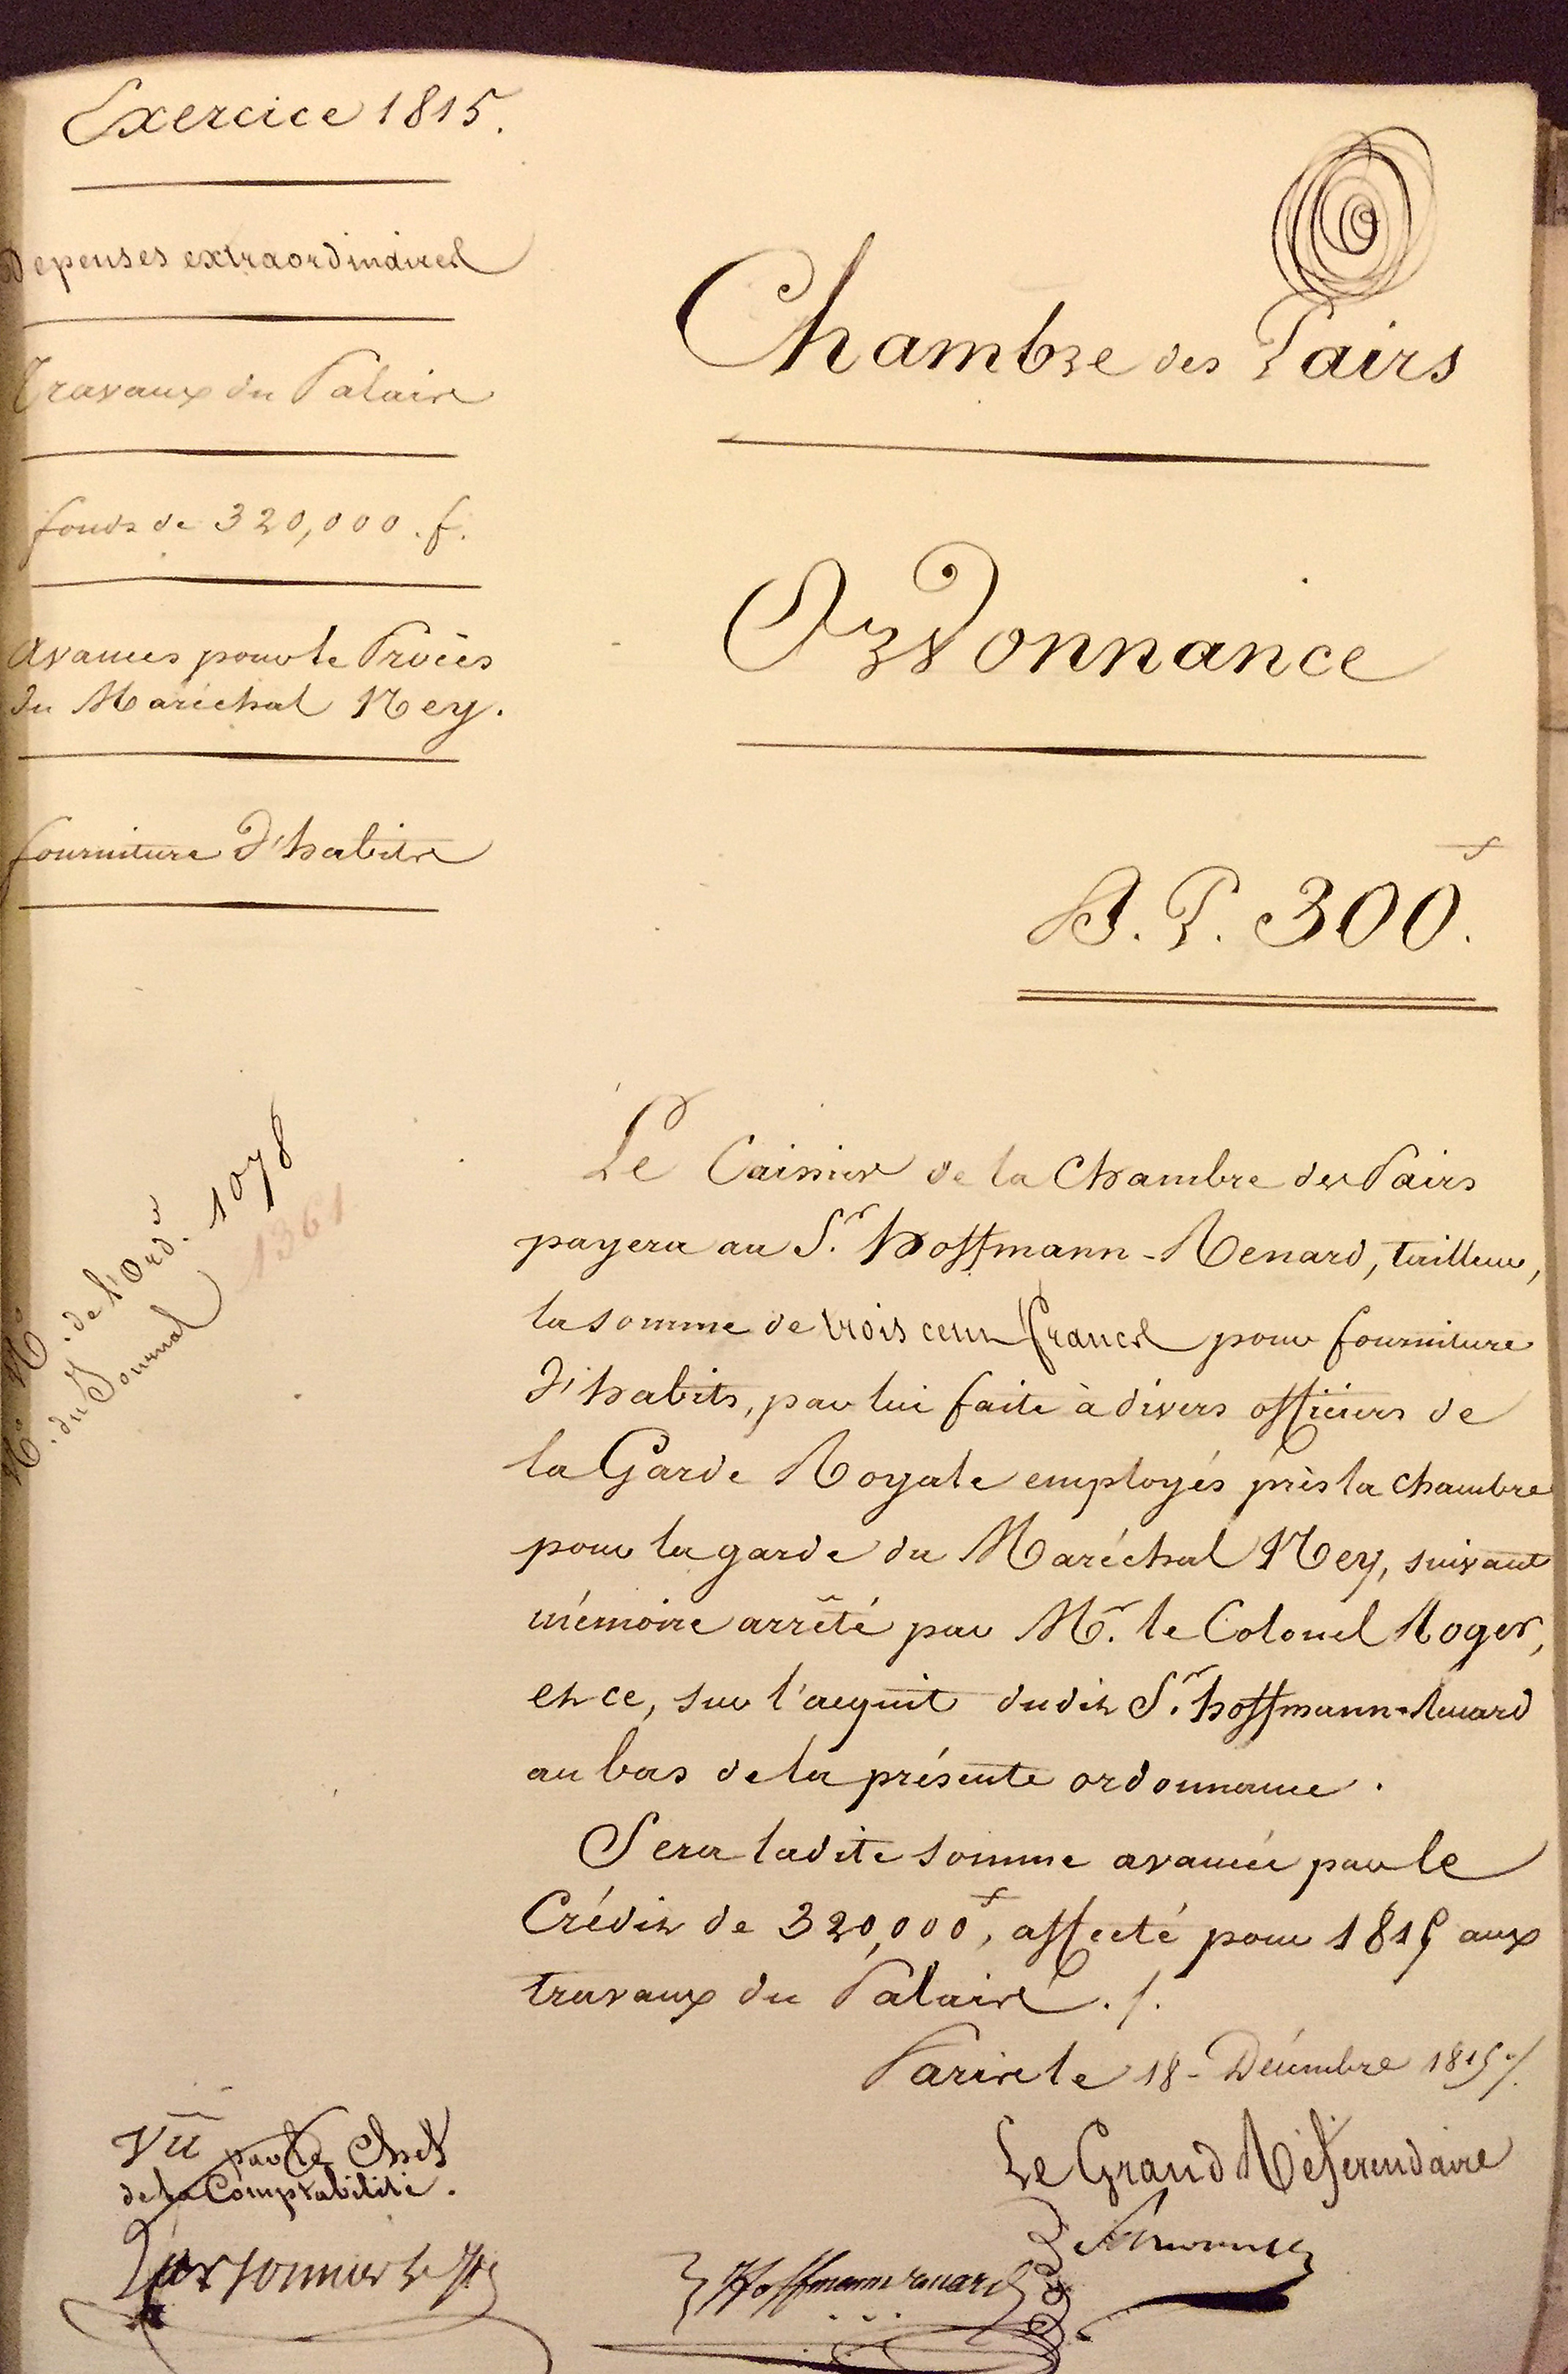 Exercice 1815.
Depenses extraordinaires
Travaux du Palais
fonds de 320,000. f.
Avances pour le Procès
du Maréchal Ney.
fourniture d'habits
Chambre des Pairs
Ordonnance
B. P. 300f.
N.o de l'Ord.ce 1078
N.o du Journal 1361
Le Caissier de la Chambre des Pairs
payera au S.r Hoffmann-Renard, tailleur,
la somme de trois cens francs pour fourniture
d'habits, par lui faite à divers officiers de
la Garde Royale employés près la chambre
pour la garde du Maréchal Ney, suivant
mémoire arrêté par M.r le Colonel Roger,
et ce, sur l'acquit dudit S.r hoffmann-Renard
au bas de la présente ordonnance.
Sera ladite somme avancée par le
Crédit de 320,000f, affecté pour 1815 aux
travaux du Palais ./.
Paris le 18 - Décembre 1815 ./.
Le Grand Référendaire
Vu par le Chef
de la Comptabilité.
Hoffmann renard